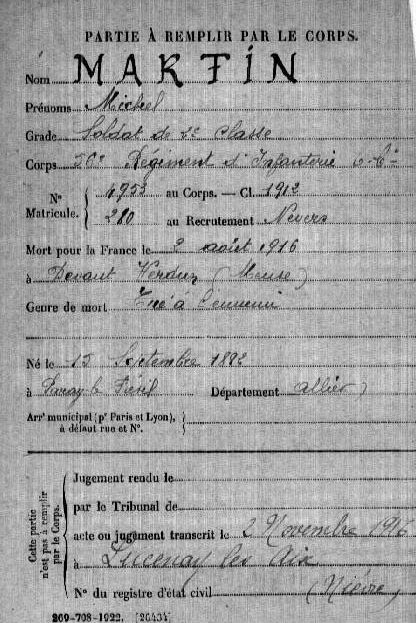 PARTIE À REMPLIR PAR LE CORPS.
Nom MARTIN
Prénoms Michel
Grade Soldat de 2e classe
Corps Régiment d'Infanterie
N° Matricule. 4953 au Corps. — Cl. 1912
280 au Recrutement Nevers
Mort pour la France le 2 août 1916
à Devant Verdun (Meuse)
Genre de mort Tué à l'ennemi
Né le Septembre
à Département Allier)
Arrt municipal (pr Paris et Lyon),
à défaut rue et N°.
Cette partie
n'est pas à remplir
par le Corps.
Jugement rendu le
par le Tribunal de
acte ou jugement transcrit le 2 Novembre 1916
à Lucenay les Aix
N° du registre d'état civil (Nièvre)
269-708-1922. [26434]